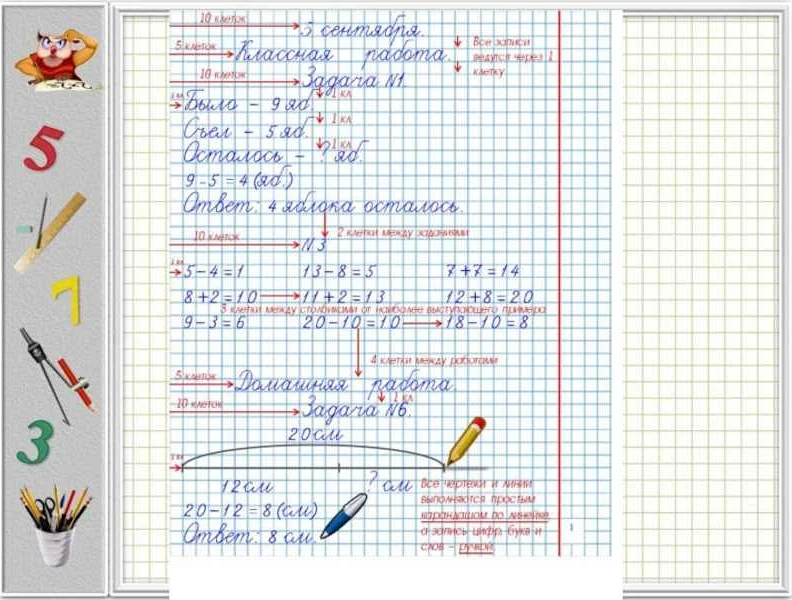 10 клеток 5 сентября.
5 клеток Классная работа. Все записи
ведутся через 1
10 клеток Задача №1. клетку
1 кл Было – 9 яб. 1 кл
Съел – 5 яб. 1 кл
Осталось – ? яб. 1 кл
9 - 5 = 4 (яб.)
Ответ: 4 яблока осталось.
2 клетки между заданиями
10 клеток №3
1 кл 5 – 4 = 1 13 – 8 = 5 7 + 7 = 14
8 + 2 = 10 11 + 2 = 13 12 + 8 = 20
3 клетки между столбиками от наиболее выступающего примера
9 – 3 = 6 20 – 10 = 10 18 – 10 = 8
4 клетки между работами
5 клеток Домашняя работа.
1 кл
10 клеток Задача №6.
20 см
1 кл
12 см ? см
20 – 12 = 8 (см)
Ответ: 8 см.
Все чертежи и линии
выполняются простым
карандашом по линейке,
а запись цифр, букв и
слов – ручкой.
5
7
3